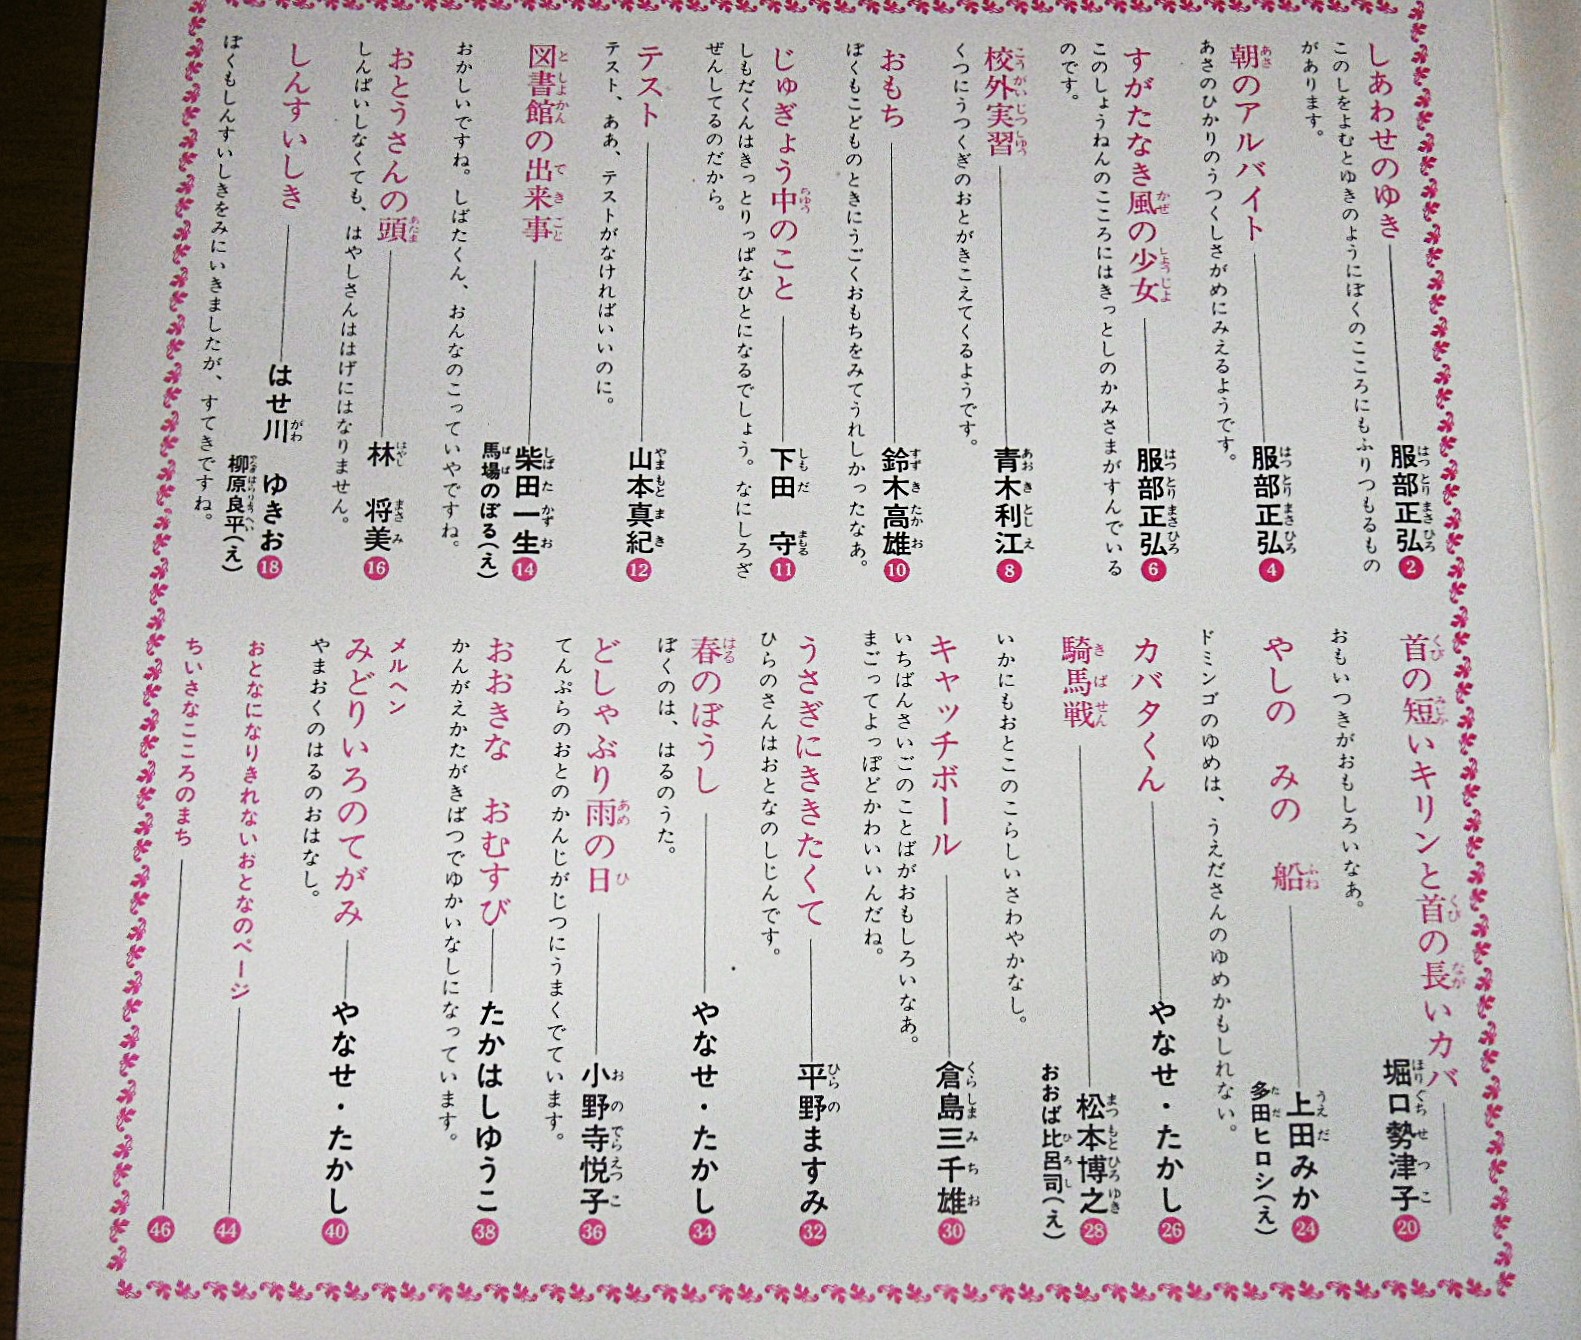 しあわせのゆき
服部正弘 2
このしをよむとゆきのようにぼくのこころにもふりつもるもの
があります。
朝のアルバイト
服部正弘 4
あさのひかりのうつくしさがめにみえるようです。
すがたなき風の少女
服部正弘 6
このしょうねんのこころにはきっとしのかみさまがすんでいる
のです。
校外実習
青木利江 8
くつにうつくぎのおとがきこえてくるようです。
おもち
鈴木高雄 10
ぼくもこどものときにうごくおもちをみてうれしかったなあ。
じゅぎょう中のこと
下田 守 11
しもだくんはきっとりっぱなひとになるでしょう。なにしろざ
ぜんしてるのだから。
テスト
山本真紀 12
テスト、ああ、テストがなければいいのに。
図書館の出来事
柴田一生 14
馬場のぼる(え)
おかしいですね。しばたくん、おんなのこっていやですね。
おとうさんの頭
林 将美 16
しんぱいしなくても、はやしさんははげにはなりません。
しんすいしき
はせ川 ゆきお 18
柳原良平(え)
ぼくもしんすいしきをみにいきましたが、すてきですね。
首の短いキリンと首の長いカバ
堀口勢津子 20
おもいつきがおもしろいなあ。
やしの みの 船
上田みか 24
多田ヒロシ(え)
ドミンゴのゆめは、うえださんのゆめかもしれない。
カバタくん
やなせ・たかし 26
騎馬戦
松本博之 28
おおば比呂司(え)
いかにもおとこのこらしいさわやかなし。
キャッチボール
倉島三千雄 30
いちばんさいごのことばがおもしろいなあ。
まごってよっぽどかわいいんだね。
うさぎにききたくて
平野ますみ 32
ひらのさんはおとなのしじんです。
春のぼうし
やなせ・たかし 34
ぼくのは、はるのうた。
どしゃぶり雨の日
小野寺悦子 36
てんぷらのおとのかんじがじつにうまくでています。
おおきな おむすび
たかはしゆうこ 38
かんがえかたがきばつでゆかいなしになっています。
メルヘン
みどりいろのてがみ
やなせ・たかし 40
やまおくのはるのおはなし。
おとなになりきれないおとなのページ
44
ちいさなこころのまち
46